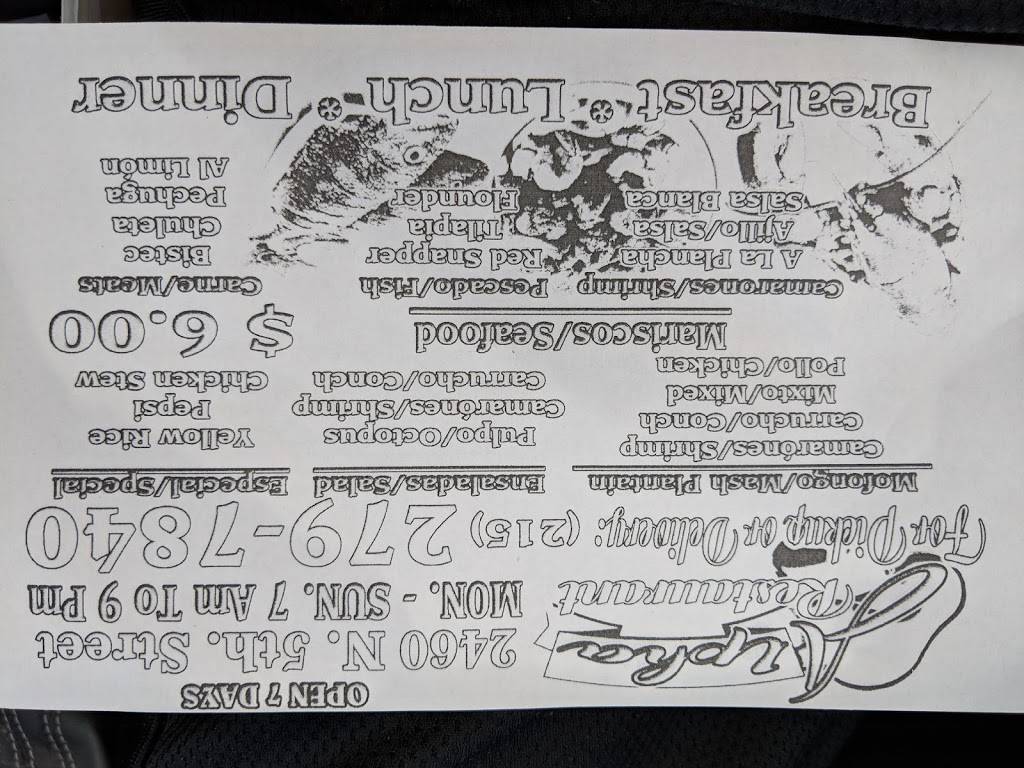 OPEN 7 DAYS
Alpha
Restaurant
2460 N. 5th. Street
MON. - SUN. 7 Am To 9 Pm
For Pickup or Delivery: (215) 279-7840
Mofongo/Mash Plantain
Camarónes/Shrimp
Carrucho/Conch
Mixto/Mixed
Pollo/Chicken
Ensaladas/Salad
Pulpo/Octopus
Camarónes/Shrimp
Carrucho/Conch
Especial/Special
Yellow Rice
Pepsi
Chicken Stew
$ 6.00
Mariscos/Seafood
Camarones/Shrimp
A La Plancha
Ajillo/Salsa
Salsa Blanca
Pescado/Fish
Red Snapper
Tilapia
Flounder
Carne/Meats
Bistec
Chuleta
Pechuga
Al Limón
Breakfast * Lunch * Dinner